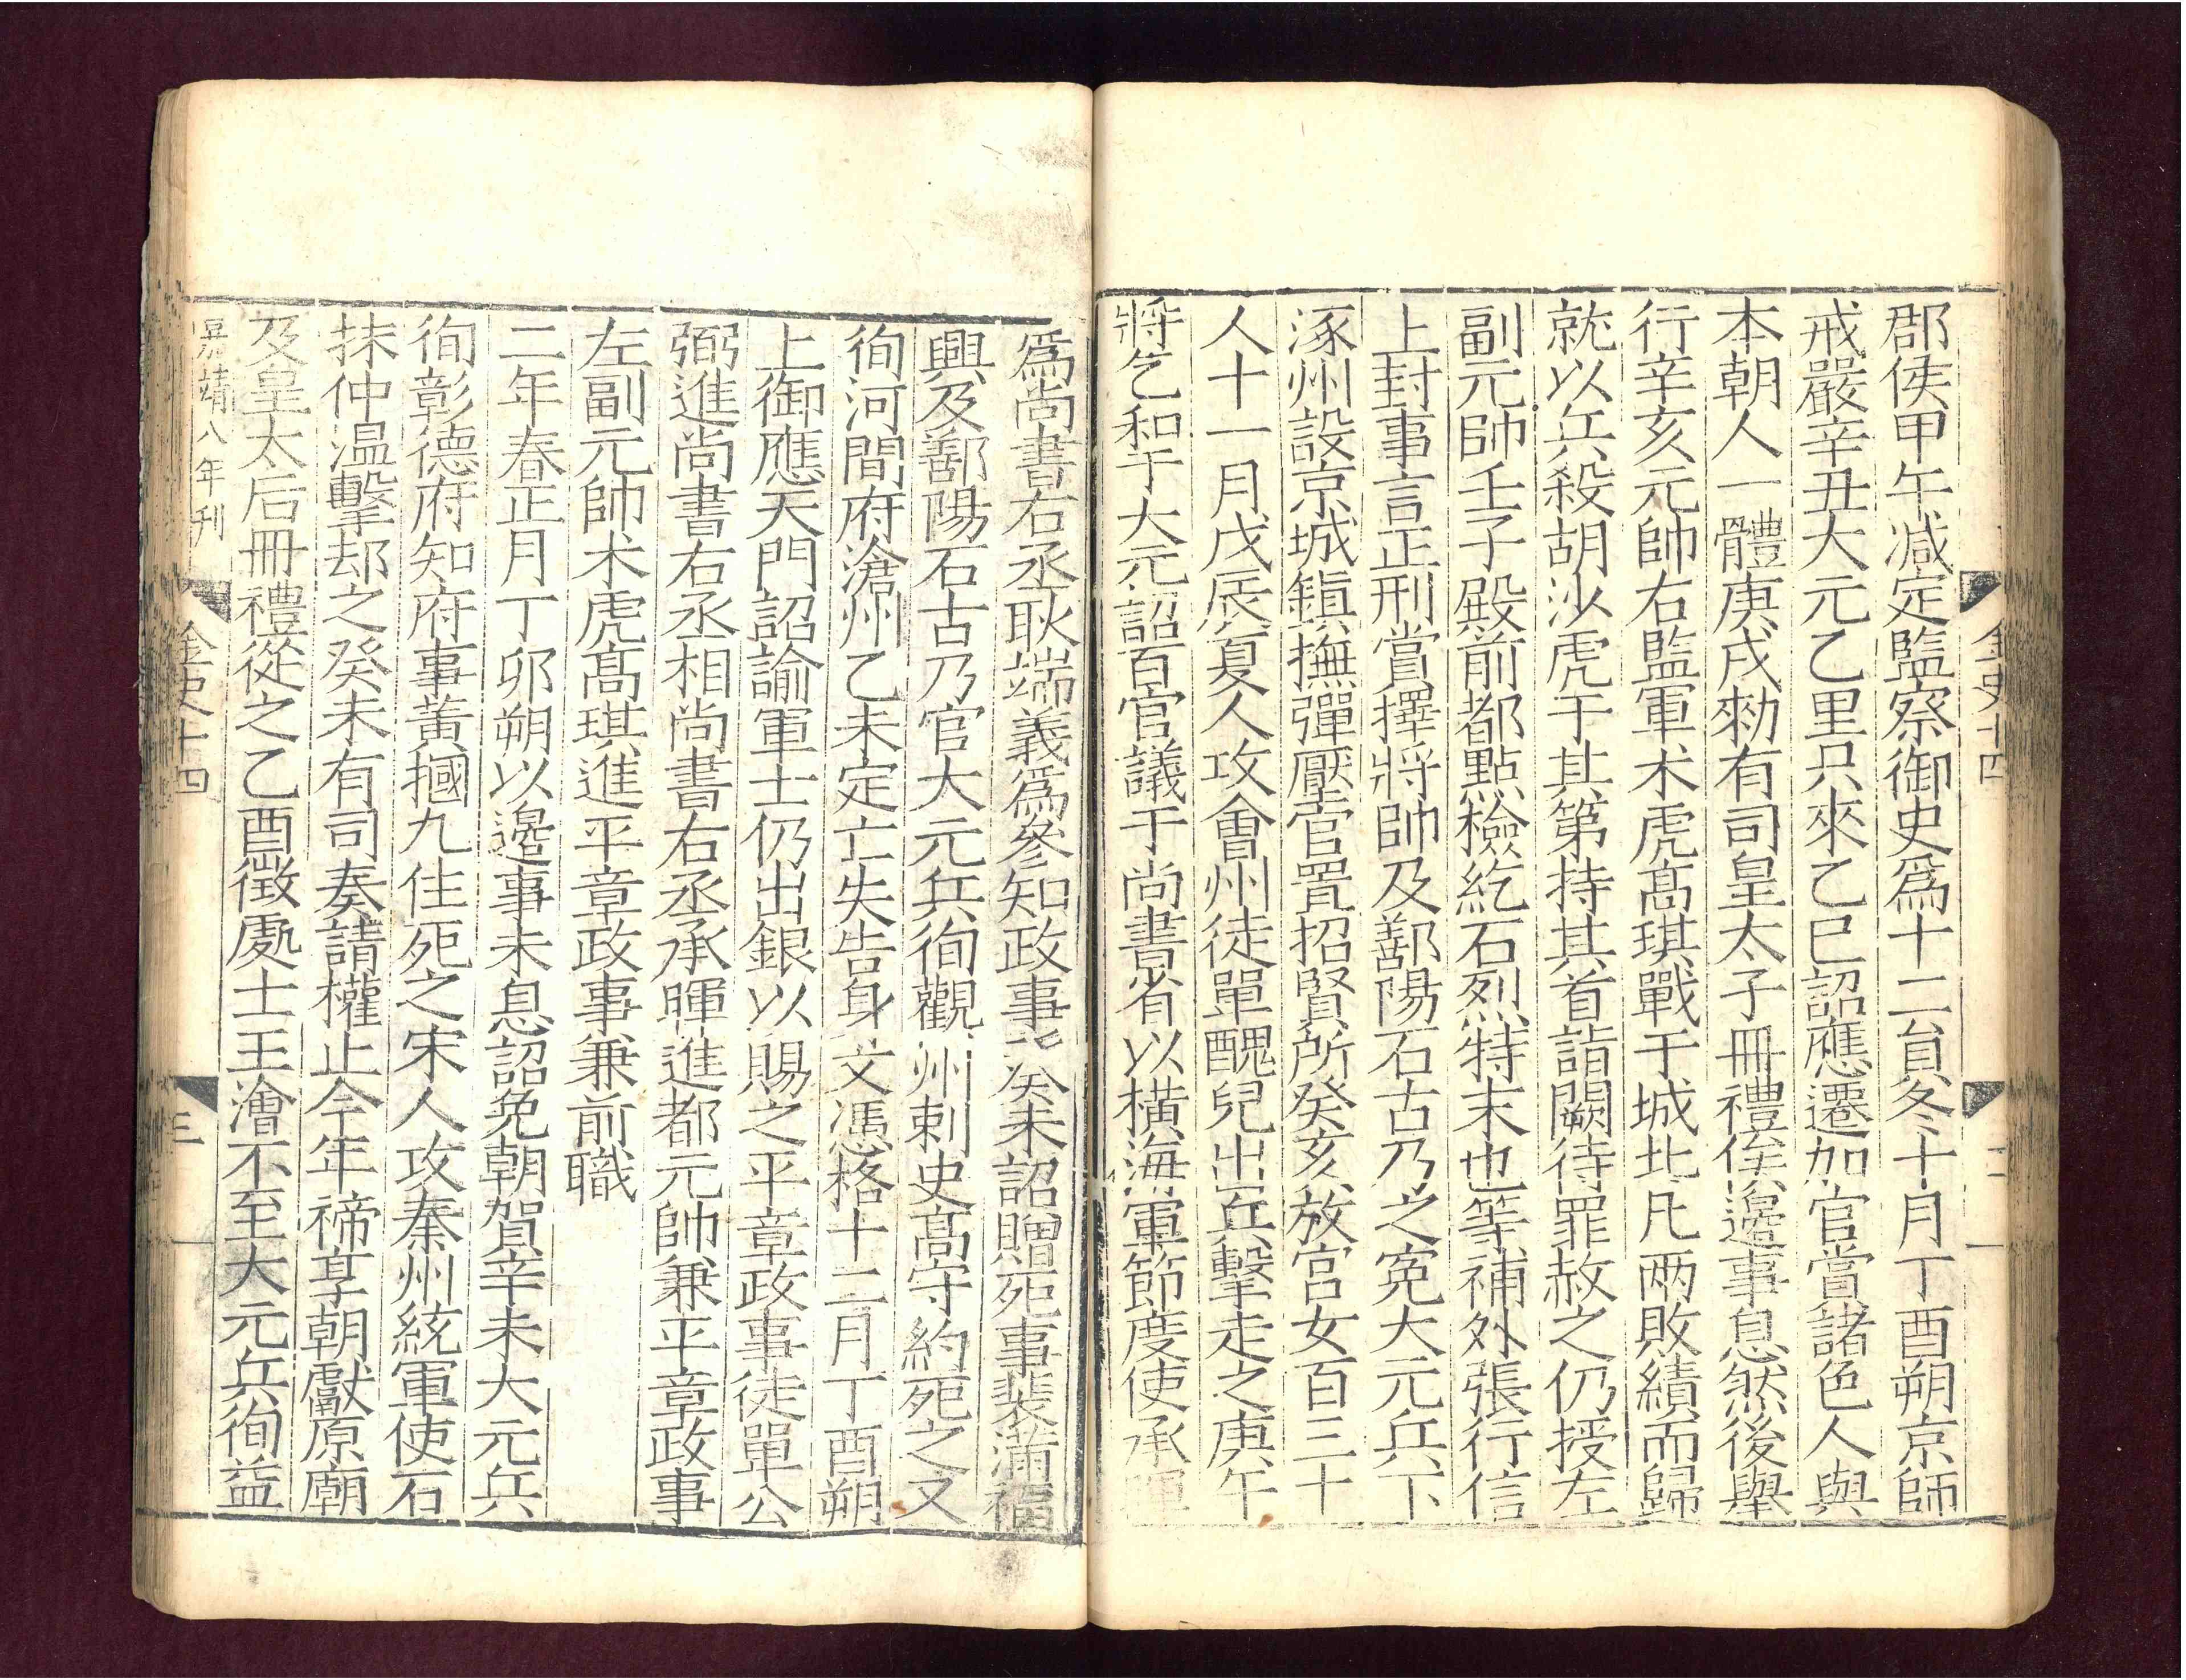 金史十四
二
郡侯甲午减定監察御史爲十二員冬十月丁酉朔京師
戒嚴辛丑大元乙里只來乙巳詔應遷加官當諸色人與
本朝人一體庚戌勑有司皇太子冊禮俟邊事息然後舉
行辛亥元帥右監軍术虎髙琪戰于城北凡两敗績而歸
就以兵殺胡沙虎于其第持其首詣闕待罪赦之仍授左
副元帥壬子殿前都點檢紇石烈特末也等補外張行信
上封事言正刑賞擇將帥及鄯陽石古乃之寃大元兵下
涿州設京城鎮撫彈壓官置招賢所癸亥放宮女百三十
人十一月戊辰夏人攻會州徒單醜兒出兵擊走之庚午
將乞和于大元詔百官議于尚書省以橫海軍節度使承暉
爲尚書右丞耿端義爲參知政事癸未詔贈死事裴滿福
興及鄯陽石古乃官大元兵徇觀州刺史髙守約死之又
徇河間府滄州乙未定亡失告身文憑格十二月丁酉朔
上御應天門詔諭軍士仍出銀以賜之平章政事徒單公
弼進尚書右丞相尚書右丞承暉進都元帥兼平章政事
左副元帥术虎髙琪進平章政事兼前職
二年春正月丁卯朔以邊事未息詔免朝賀辛未大元兵
徇彰德府知府事黃摑九住死之宋人攻秦州統軍使石
抹仲温擊却之癸未有司奏請權止今年禘享朝獻原廟
及皇太后冊禮從之乙酉徴處士王澮不至大元兵徇益
嘉靖八年刊
金史十四
三